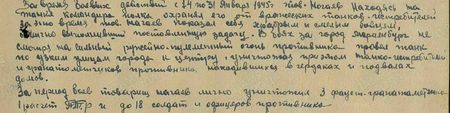 За время боевых действий с 24 по 31 января 1945г тов. Шагаев находясь на
танке командира полка охранял его от вражеских танков-истребителей
За это время тов. Шагаев показал себя храбрым и смелым воином,
отлично выполняющий поставленную задачу. В боях за город Мариамбург не
смотря на сильный ружейно-пулеметный огонь противника провел танк
по узким улицам города к центру, уничтожая при этом танко-истребителей
и гранатометчиков противника, находившихся в чердаках и подвалах
домов.
За период боев товарищ Шагаев лично уничтожил 3 фауст-гранатаметчика
1 расчет ПТР и до 18 солдат и офицеров противника